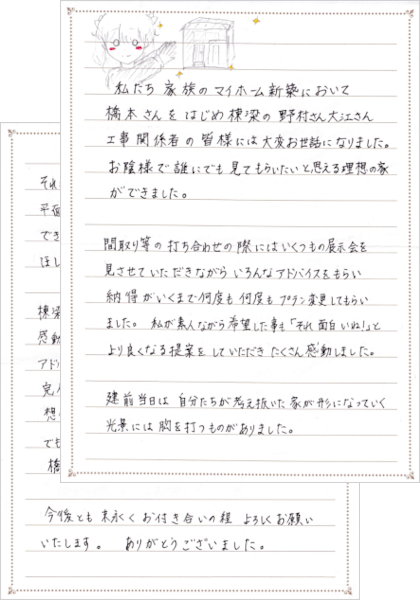 私たち家族のマイホーム新築において
橋本さんをはじめ棟梁の野村さん大江さん
工事関係者の皆様には大変お世話になりました。
お陰様で誰にでも見てもらいたいと思える理想の家
ができました。
間取り等の打ち合わせの際にはいくつもの展示会を
見させていただきながらいろんなアドバイスをもらい
納得がいくまで何度も何度もプラン変更してもらい
ました。私が素人ながら希望した事も「それ面白いね!」と
より良くなる提案をしていただきたくさん感動しました。
建前当日は自分たちが考え抜いた家が形になっていく
光景には胸を打つものがありました。
それ
平面
でき
ほし
棟梁
感動
アド
完
想
でも
橋
今後とも末永くお付き合いの程よろしくお願い
いたします。ありがとうございました。